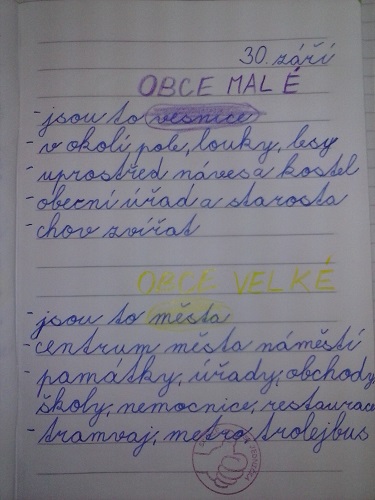 30. září
OBCE MALÉ
- jsou to vesnice
- v okolí pole, louky, lesy
- uprostřed náves a kostel
- obecní úřad a starosta
- chov zvířat
OBCE VELKÉ
- jsou to města
- centrum města náměstí
- památky, úřady, obchody,
školy, nemocnice, restaurace
- tramvaj, metro, trolejbus